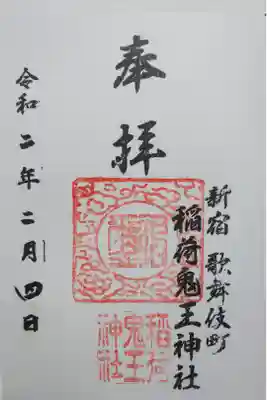 奉拝
新宿 歌舞伎町
稲荷鬼王神社
令和二年二月四日
稲荷
鬼王
神社